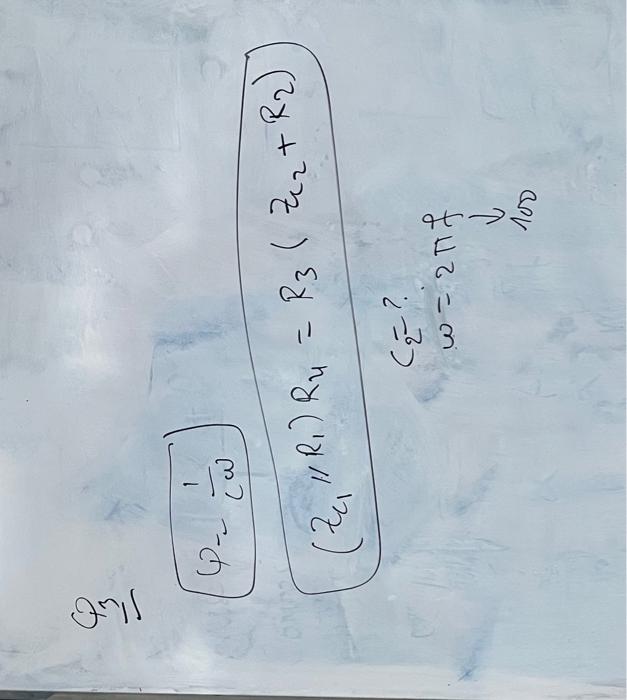 Q3
φ = 1/cω
(Zc1 // R1) R4 = R3 ( Zc2 + R2)
C2 = ?
ω = 2πf
↓
100